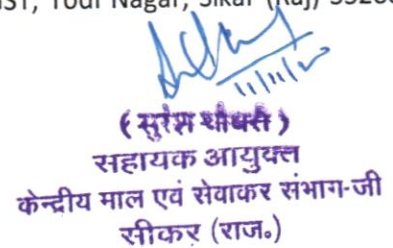 GST, Todi Nagar, Sikar (Raj)
11/11/20
(सुरेश चौधरी)
सहायक आयुक्त
केन्द्रीय माल एवं सेवाकर संभाग-जी
सीकर (राज०)